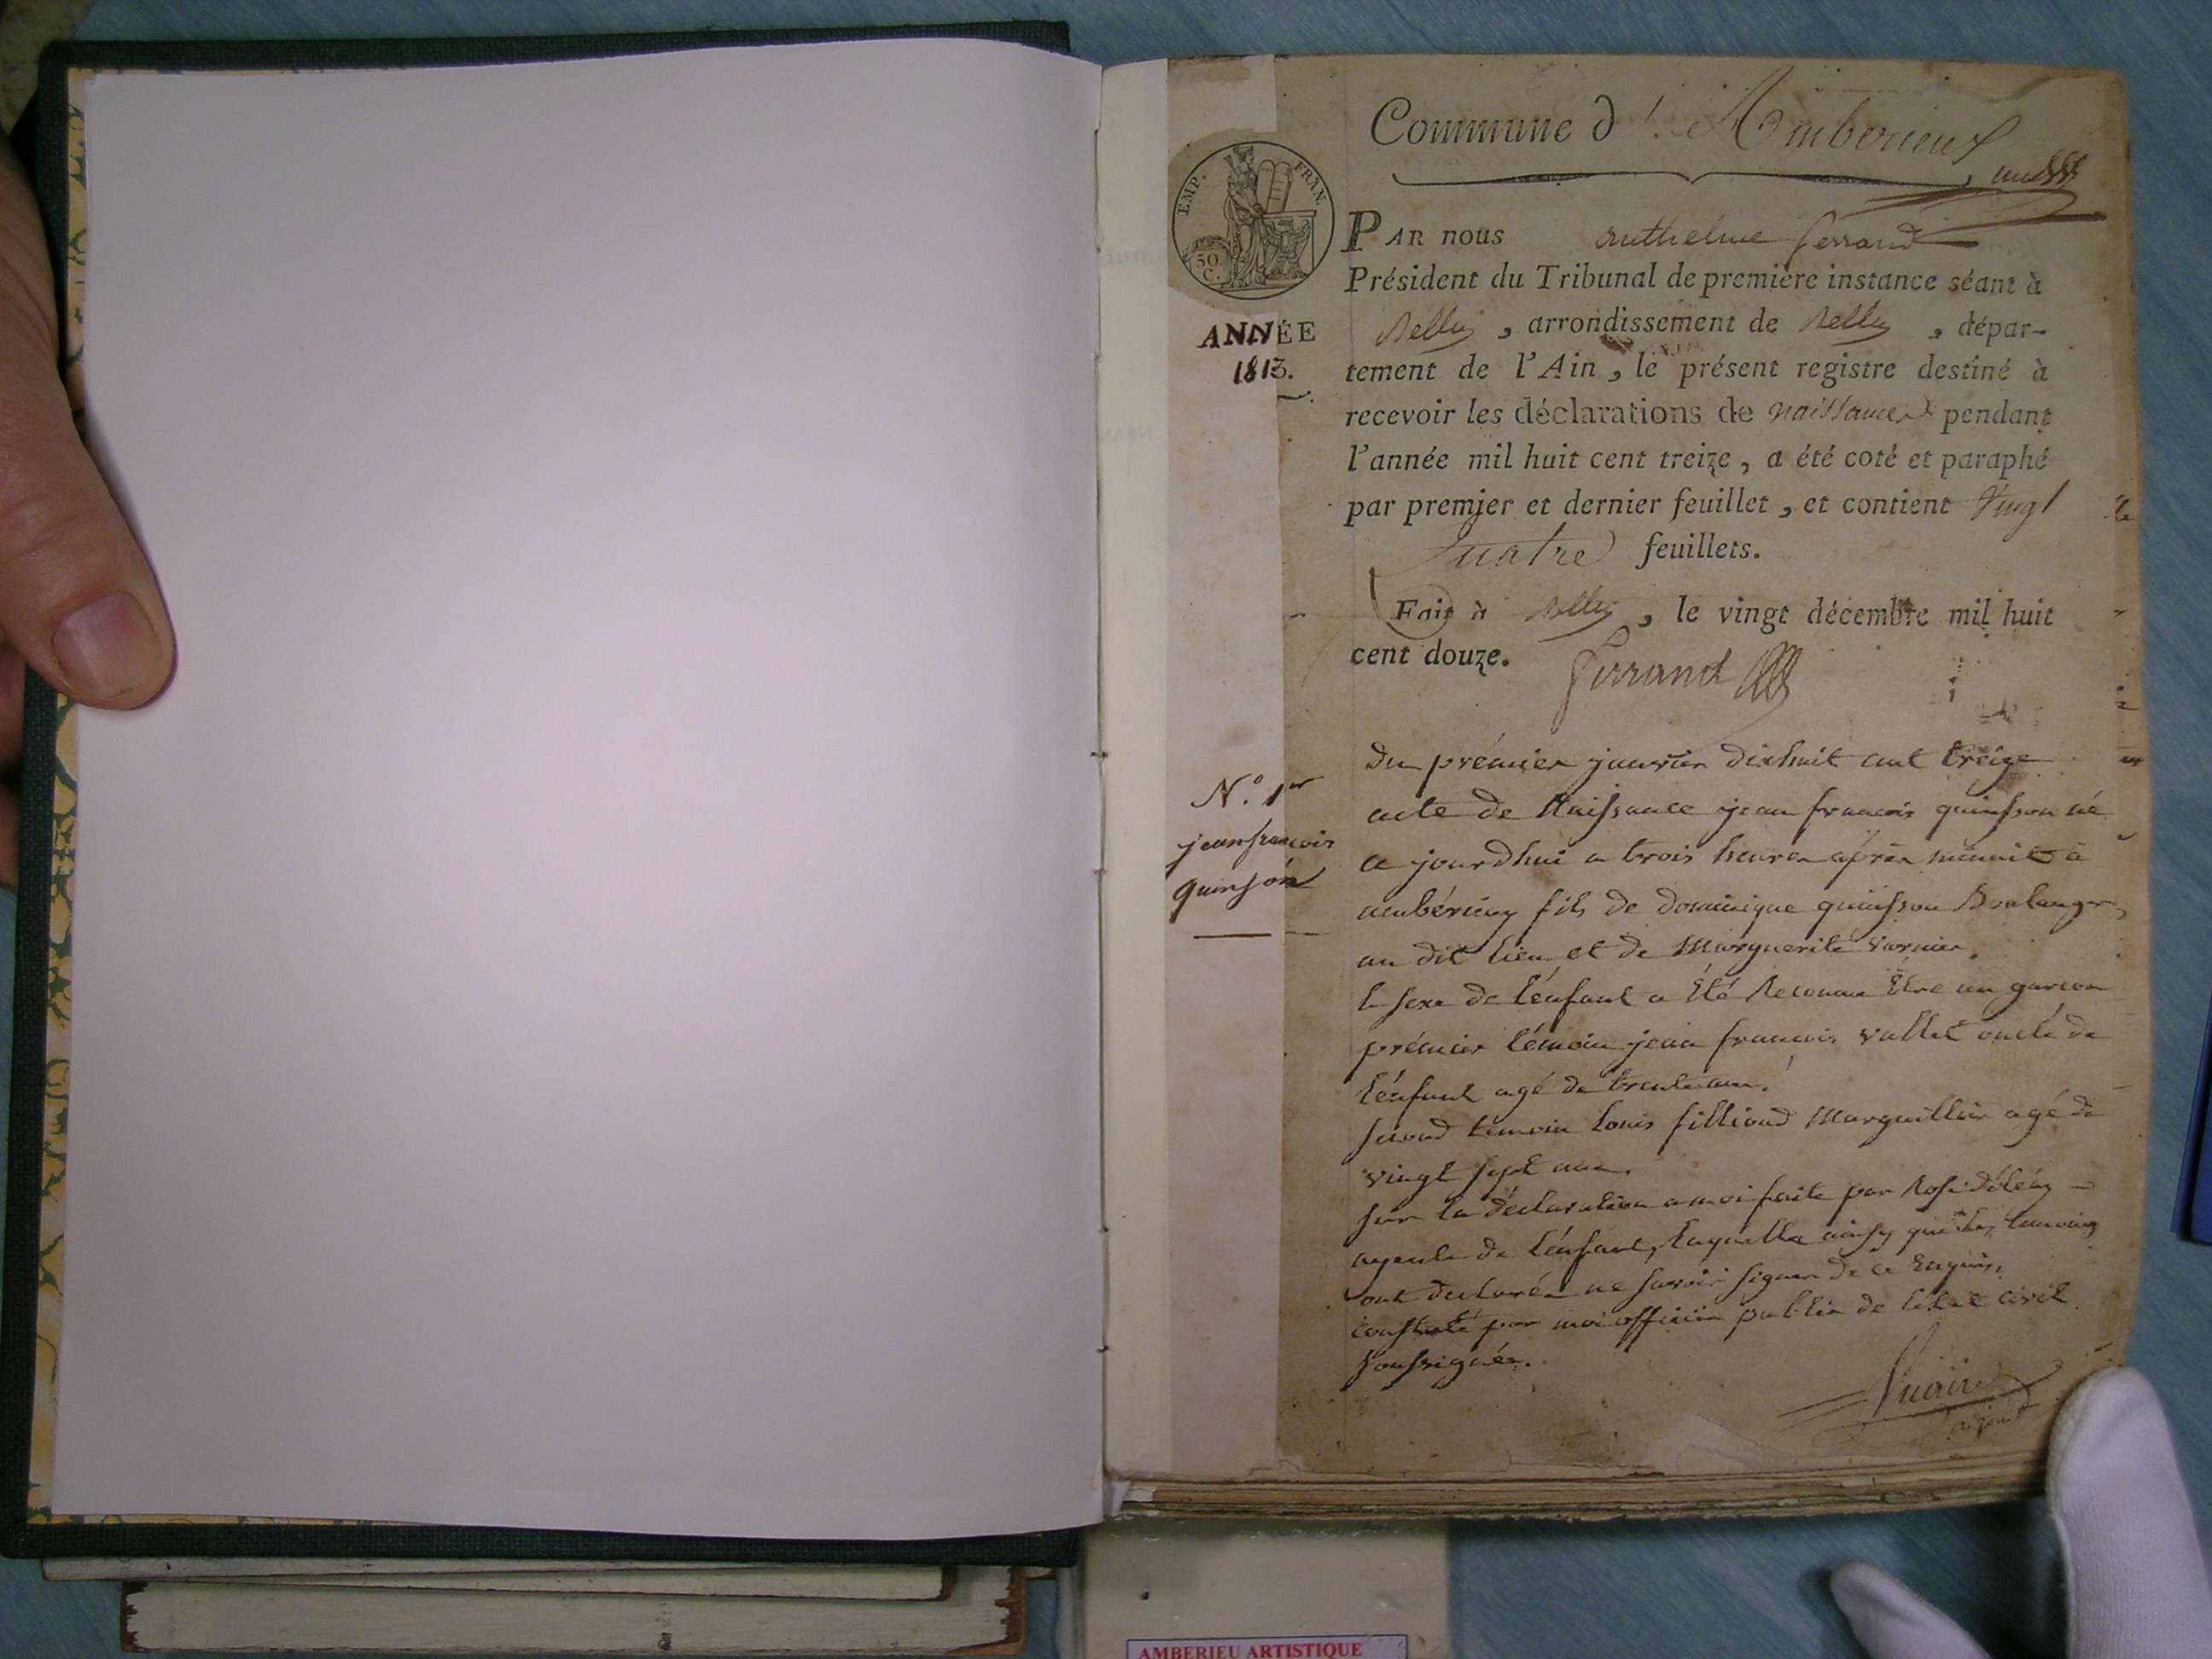 Commune d'Amberieux
un
EMP. FRAN.
50 C.
ANNÉE
1813.
PAR nous Anthelme ferrand
Président du Tribunal de première instance séant à
Belley , arrondissement de Belley , dépar-
tement de l'Ain , le présent registre destiné à
recevoir les déclarations de naissances pendant
l'année mil huit cent treize , a été coté et paraphé
par premier et dernier feuillet , et contient Vingt
Quatre feuillets.
Fait à Belley , le vingt décembre mil huit
cent douze.
ferrand
N.º 1er
jean francois
quinson
Du prémier janvier dixhuit cent treize
acte de Naissance jean francois quinson né
ce jourdhui a trois heures après minuit à
ambérieux fils de dominique quinson Boulanger
au dit lieu et de Marguerite varnier.
le sexe de l'énfant a été Reconnu Être un garcon
prémier témoin jean francois vallet oncle de
l'énfant agé de trente ans.
second temoin Louis filliond Marguillier agé de
vingt sept ans.
sur la déclaration a moi faite par Rose
ayeule de l'énfant, laquelle ainsy que les temoins
ont declarés ne savoir signer de ce Enquis.
constaté par moi officier public de létat civil
soussignés.
adjoint
AMBERIEU ARTISTIQUE